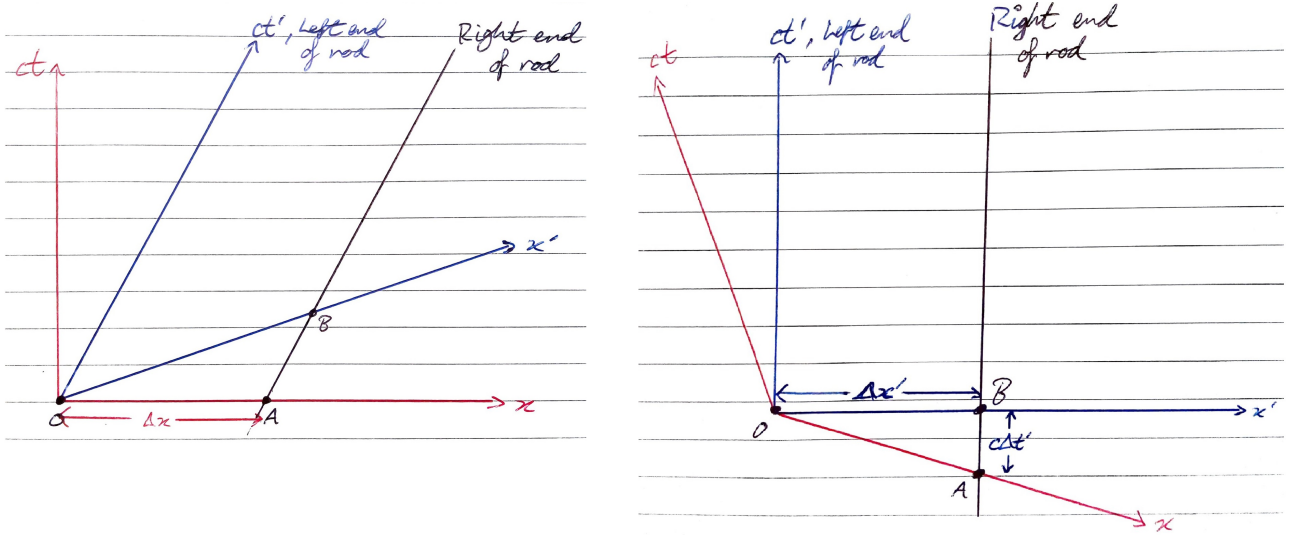 ct
ct', Left end
of rod
Right end
of rod
x'
B
O
A
x
Δx
ct
ct', Left end
of rod
Right end
of rod
Δx'
B
x'
O
cΔt'
A
x